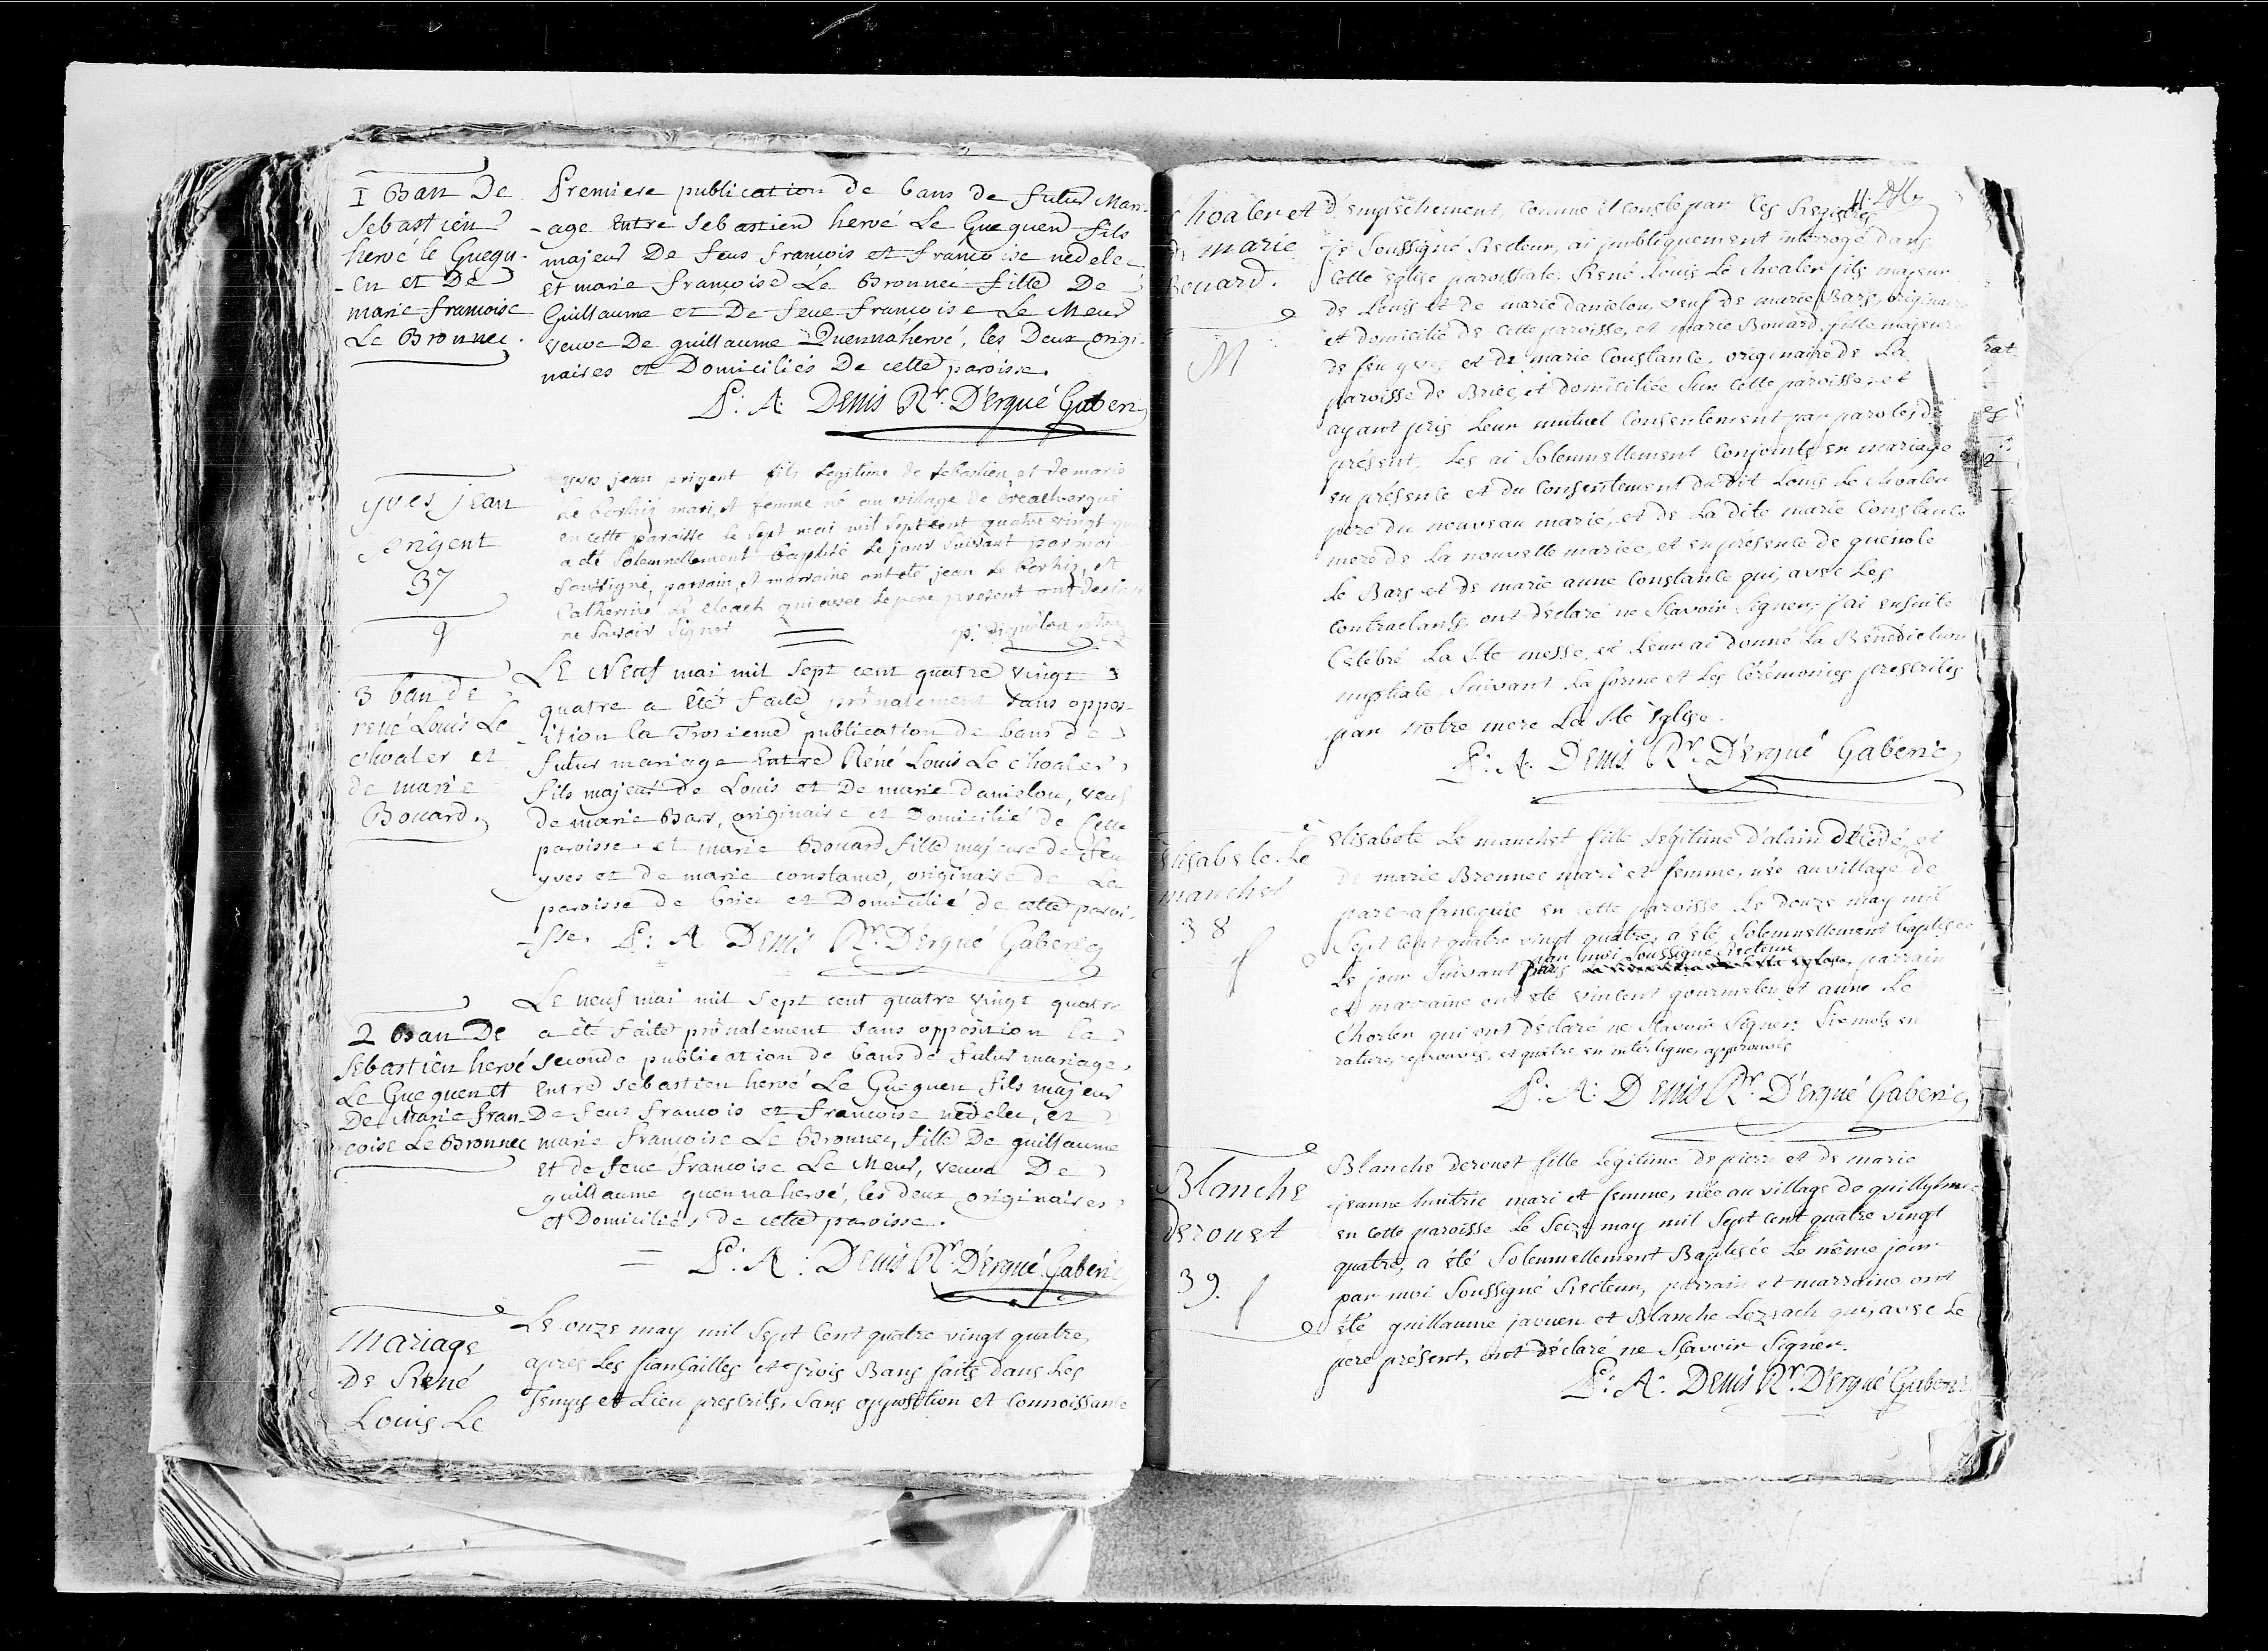 1 Ban De
Sebastien
hervé le Guegu-
-en et De
marie francoise
Le Bronnec.
Premiere publication de bans de futur Mari-
-age Entre Sebastien hervé Le Gueguen fils
majeur De feus francois et francoise nedelec
et marie francoise Le Bronnec fille De
Guillaume et De feue francoise Le Meur
veuve De guillaume Quennahervé, les Deux origi-
naires et Domiciliés De cette paroisse.
P: A: Denis Rr. D'Ergué Gaberic
yves jean
prigent
37
g
yves jean prigent fils legitime de sebastien et de marie
Le corhiz mari, et femme né au village de
en cette paroisse le sept mai mil sept cent quatre vingt
a été Solemnellement baptisé le jour suivant par moi
soussigné, parrain, et marraine ont été jean Le Corhiz, et
Catherine Le cleach qui avec le pere present ont declaré
ne savoir signer
3 ban de
rené Louis Le
choaler et
de marie
Bouard.
Le Neuf mai mil Sept cent quatre vingt
quatre a été faite prônalement sans oppos-
-ition la Troisieme publication de bans de
futur mariage Entre Réné Louis Le choaler,
fils majeur de Louis et De marie danielou, veuf
de marie Bars, originaire et Domicilié de Cette
paroisse et marie Bouard fille majeure de feu
yves et de marie constance, originaire de La
paroisse de briec et Domicilié de cette paroi-
-sse. P: A Denis Rr. D'Ergué Gaberic
2 Ban De
Sebastien hervé
Le Gueguen et
De Marie fran-
coise Le Bronnec
Le neuf mai mil Sept cent quatre vingt quatre
a été faite prônalement sans opposition la
seconde publication de bans de futur mariage,
Entre sebastien hervé Le Gueguen fils majeur
De feus francois et francoise nedelec, et
marie francoise Le Bronnec, fille De guillaume
et de feue francoise Le Meur, veuve De
guillaume quennahervé, les deux originaires
et Domiciliés de cette paroisse.
P: A: Denis Rr. D'Ergué Gaberic
Mariage
De René
Louis Le
Le onze may mil Sept Cent quatre vingt quatre,
apres Les fiançailles et trois Bans faits dans Les
Temps et Lieu prescrits, sans opposition et connoissance
choaler et
de marie
Bouard.
M
d'empêchement, comme il conste par ces Registres
je Soussigné Recteur, ai publiquement interrogé dans
Cette Eglise paroissiale, René Louis Le choaler fils majeur
de Louis et de marie danielou, veuf de marie Bars, originaire
et domicilié de cette paroisse, et marie Bouard fille majeure
de feu yves et de marie Constance, originaire de La
paroisse de Briec, et domiciliée sur cette paroisse, et
ayant pris Leur mutuel Consentement par paroles de
présent, Les ai Solemnellement Conjoints en mariage
en présence et du Consentement du dit Louis Le choaler
pere du nouveau marié, et de La dite marie Constance
mere de La nouvelle mariée, et en presence de guénole
Le Bars et de marie anne Constance qui, avec Les
Contractants, ont déclaré ne Scavoir Signer, j'ai ensuite
Célébré La Ste messe, et Leur ai donné La Bénédiction
nuptiale suivant La forme et Les Cérémonies prescrites
par Notre mere La Ste Eglise.
P: A: Denis Rr. D'Ergué Gaberic
Elisabete Le
manchet
38
f
Elisabete Le manchet fille Legitime d'alain décédé, et
de marie Bronnec mari et femme, née au village de
parc-a fanequic en cette paroisse Le douze may mil
Sept Cent quatre vingt quatre, a été Solemnellement baptisée
par moi Soussigné Recteur
Le jour Suivant parrain
et marraine ont été vincent gourmelen et anne Le
Chorlen qui ont déclaré ne Scavoir Signer. Six mots en
rature, reprouvés, et quatre en interligne, approuvés
P: A: Denis Rr. D'Ergué Gaberic
Blanche
derouet
39.
f
Blanche derouet fille Legitime de pierre et de marie
jeanne huitric mari et femme, née au village de
en cette paroisse Le Seize may mil Sept Cent quatre vingt
quatre, a été Solemnellement Baptisée Le même jour
par moi Soussigné Recteur, parrain et marraine ont
été guillaume jaouen et Blanche Lezeach qui, avec Le
pere présent, ont déclaré ne Scavoir Signer.
P: A: Denis Rr. D'Ergué Gaberic